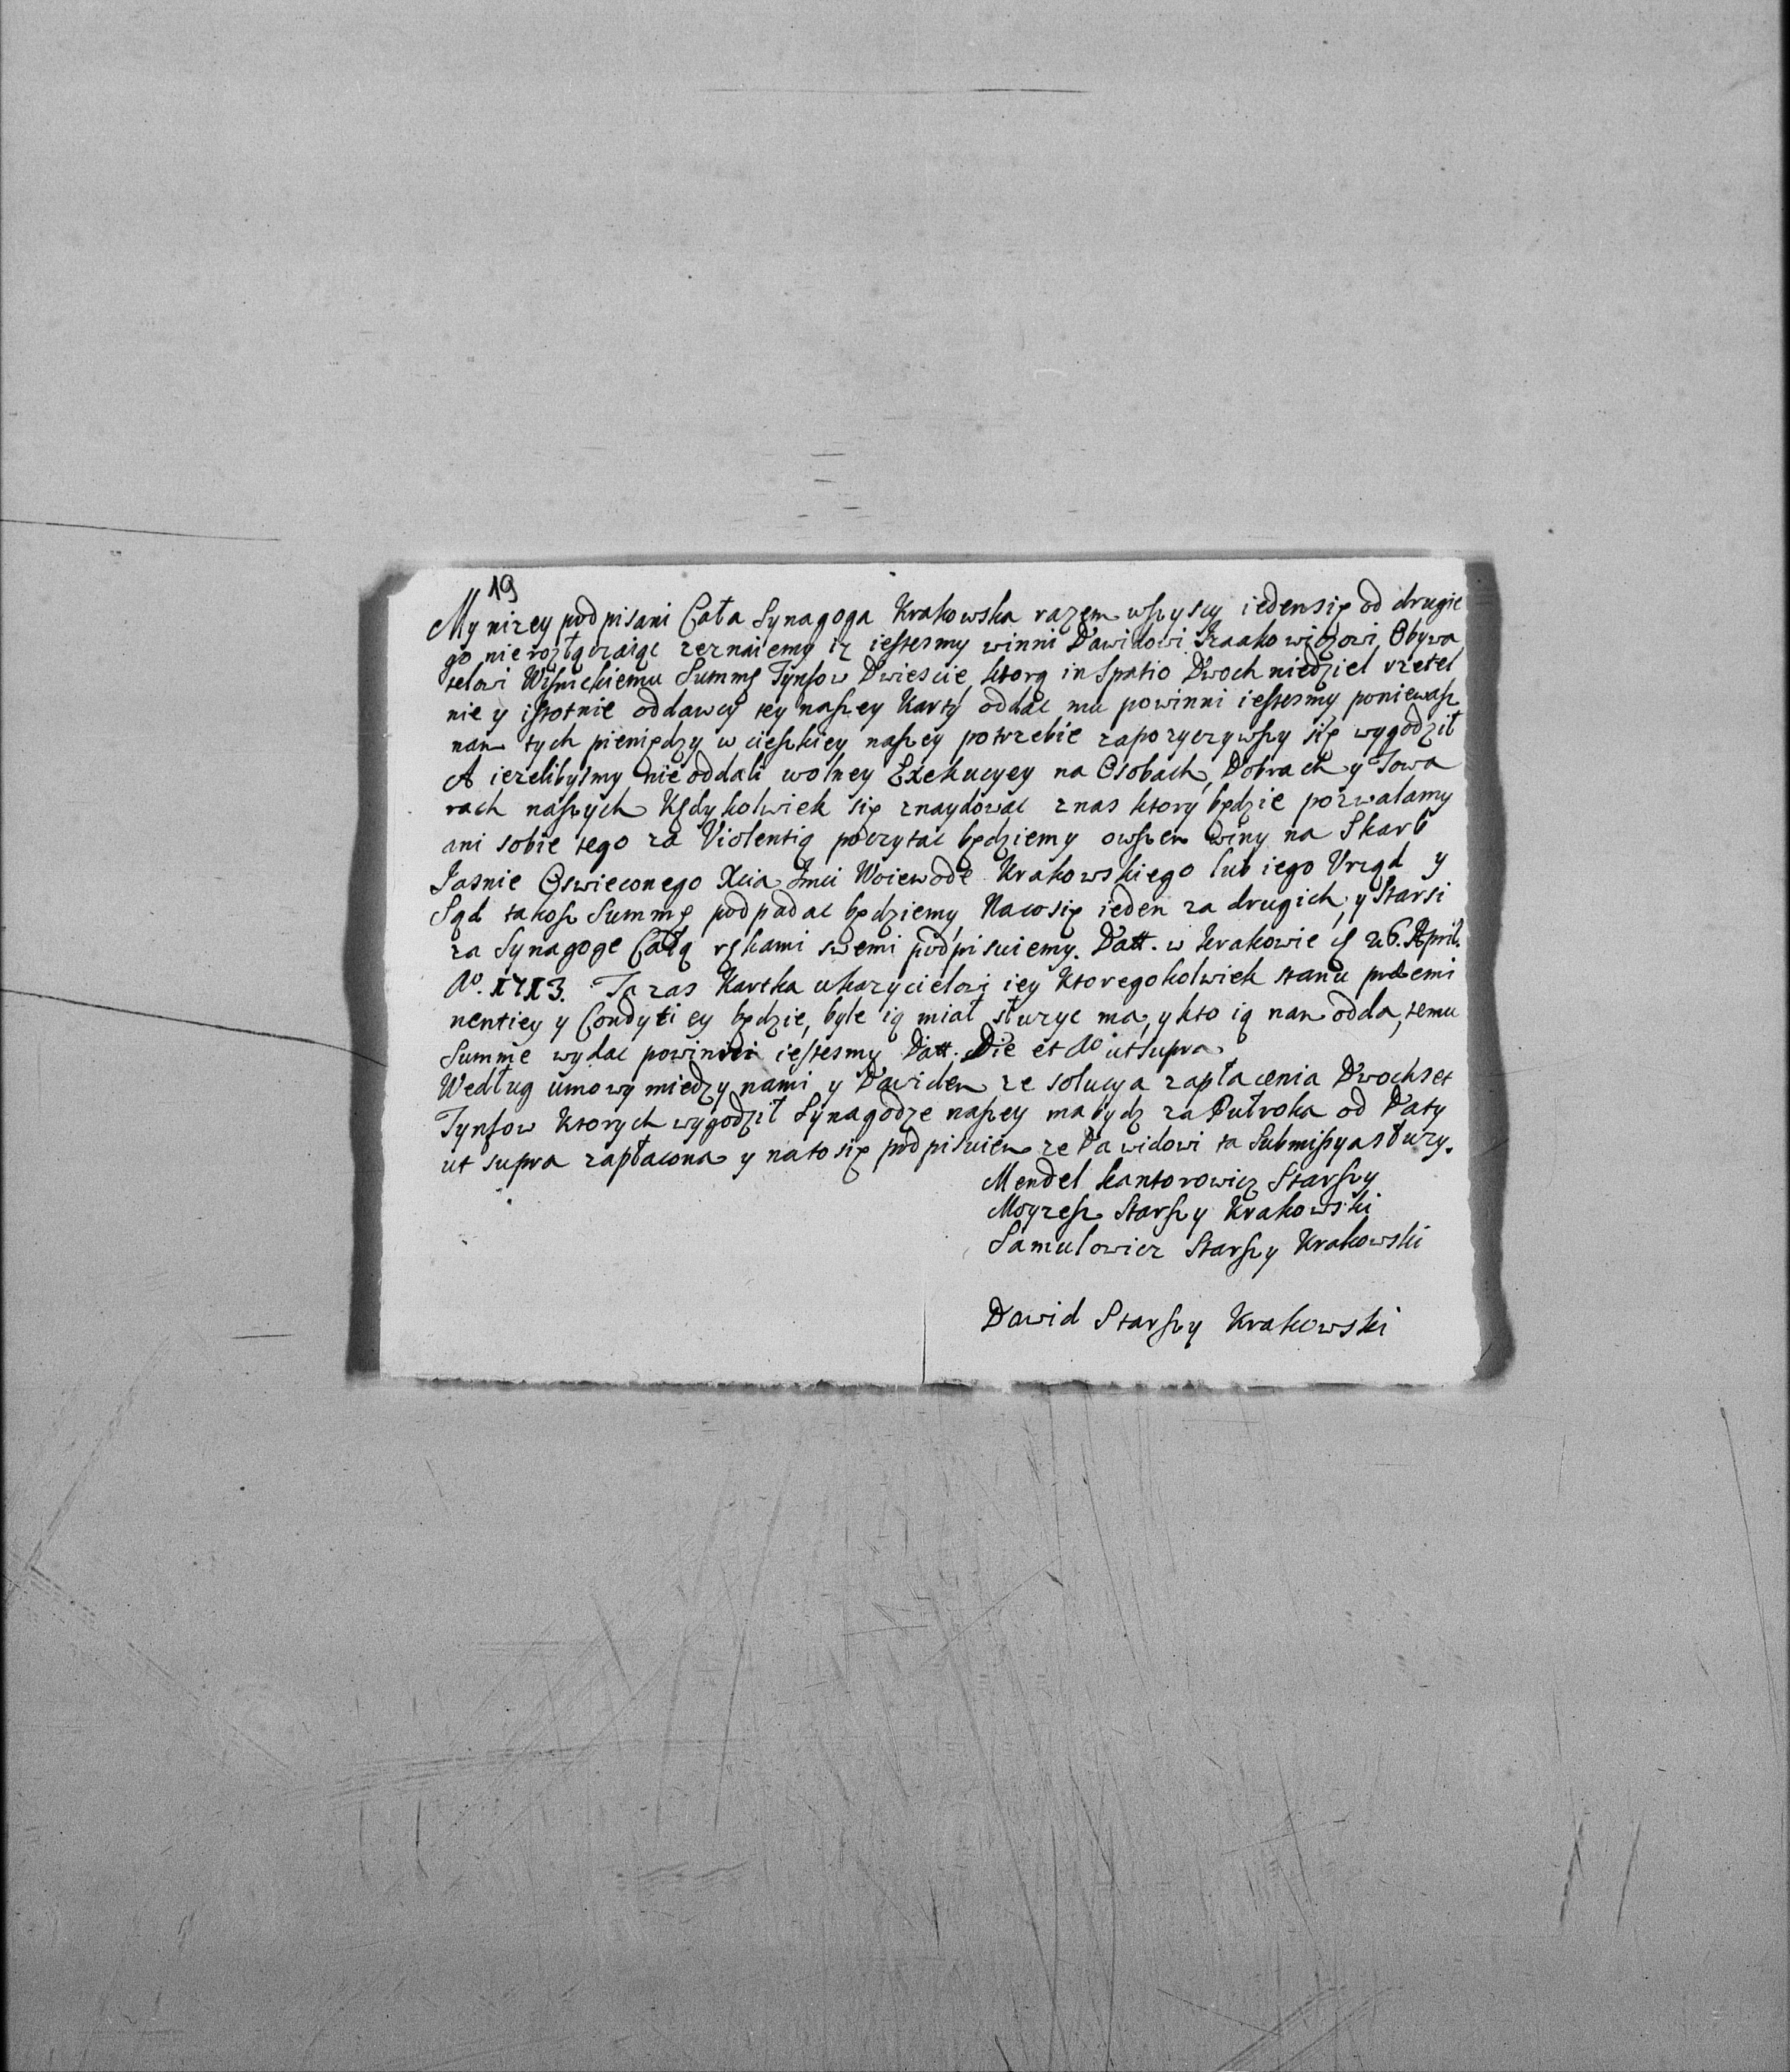 19
My nizey podpisani Cała Synagoga Krakowska razem wszyscy ieden się od drugie
go nie rozłączaiąc zeznaiemy iz iestesmy winni Dawidowi Izaakowiczowi Obywa
telowi Wisnickiemu Summę Tynfow Dwiescie, ktorą in Spatio Dwoch niedziel rzetel
nie y istotnie oddawcy tey naszey Karty oddac mu powinni iestesmy poniewasz
nam tych pieniędzy w cieszkiey naszey potrzebie zapozyczywszy się wygodził
A iezelibysmy nie oddali wolney Exekucyey na Osobach, Dobrach y Towa
rach naszych Kędykolwiek się znaydowac z nas ktory będzie pozwalamy
ani sobie tego za Violentią poczytac będziemy owszem winy na Skarb
Jasnie Oswieconego Xcia Jmci Woiewode Krakowskiego lub iego Vrząd y
Sąd takosz Summę podpadac będziemy, Na co się ieden za drugich, y Starsi
za Synagoge Całą rękami swemi podpisuiemy. Datt. w Krakowie 26. April.
Ao. 1713. Ta zas Kartka ukazycielowi iey Ktoregokolwiek stanu præemi
nentiey y Condytiey będzie, byle ią miał słuzyc ma, y kto ią nam odda, temu
Summe wydac powinni iestesmy Datt. Die et Ao ut supra
Według umowy miedzy nami y Dawidem ze solucya zapłacenia Dwochset
Tynfow Ktorych wygodził Synagodze naszey ma bydz za Pułroka od Daty
ut supra zapłacona y na to się podpisuiem ze Dawidowi ta Submissya słuzy.
Mendel Kantorowicz Starszy
Moyzesz Starszy Krakowski
Samulowicz Starszy Krakowski
Dawid Starszy Krakowski